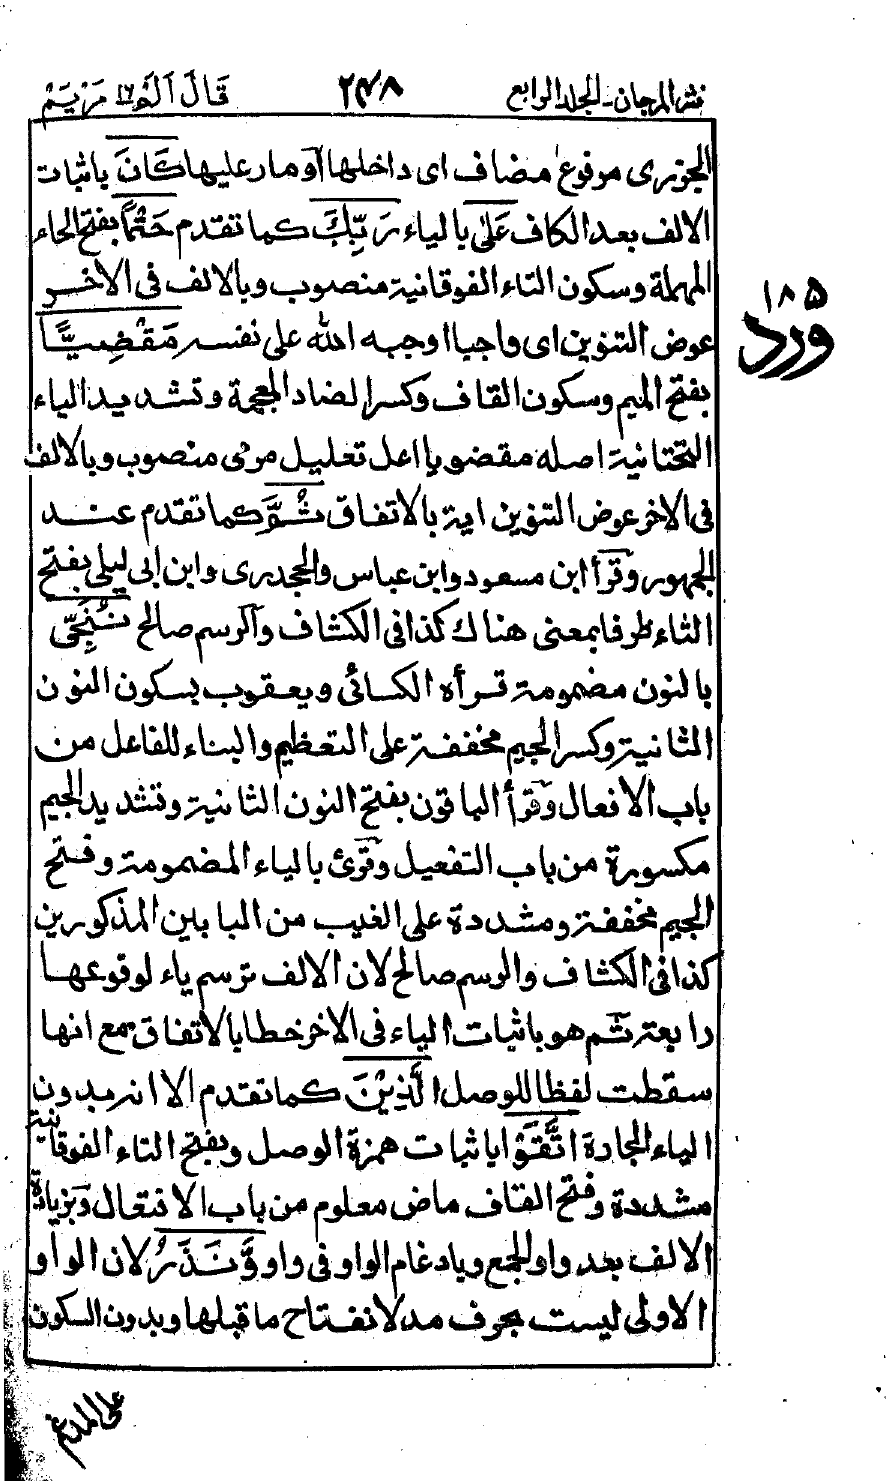 نثر المرجان - الجلد الرابع ٢٤٨ قَالَ اَلَمْ ١٦ مَرْيَم
الجزرى مرفوع مضاف اى داخلها اَو مار عليها كَانَ باثبات
الالف بعد الكاف عَلٰى بالياء رَبِّكَ كما تقدم حَتْمًا بفتح الحاء
المهملة وسكون التاء الفوقانية منصوب وبالالف فى الاخر
عوض التنوين اى واجبا اوجبه الله على نفسه مَقْضِيًّا
بفتح الميم وسكون القاف وكسر الضاد المعجمة وتشديد الياء
التحتانية اصله مقضويا اعل تعليل مرمى منصوب وبالالف
فى الاخر عوض التنوين اية بالاتفاق ثُمَّ كما تقدم عند
الجمهور وقرأ ابن مسعود وابن عباس والجحدرى وابن ابى ليلى بفتح
الثاء ظرفا بمعنى هناك كذا فى الكشاف والرسم صالح نُنَجِّى
بالنون مضمومة قرأه الكسائى ويعقوب بسكون النون
الثانية وكسر الجيم مخففة على التعظيم والبناء للفاعل من
باب الافعال وقرأ الباقون بفتح النون الثانية وتشديد الجيم
مكسورة من باب التفعيل وقرئ بالياء المضمومة وفتح
الجيم مخففة ومشددة على الغيب من البابين المذكورين
كذا فى الكشاف والرسم صالح لان الالف ترسم ياء لوقوعها
رابعة ثم هو باثبات الياء فى الاخر خطا بالاتفاق مع انها
سقطت لفظا للوصل الَّذِيْنَ كما تقدم الا انه بدون
الياء الجارة اتَّقَوْا باثبات همزة الوصل وبفتح التاء الفوقانية
مشددة وفتح القاف ماض معلوم من باب الافتعال وبزيادة
الالف بعد واو الجمع وبادغام الواو فى واو وَّنَذَرُ لان الواو
الاولى ليست بحرف مد لانفتاح ما قبلها وبدون السكون
على المدغم
١٨٥
ورد